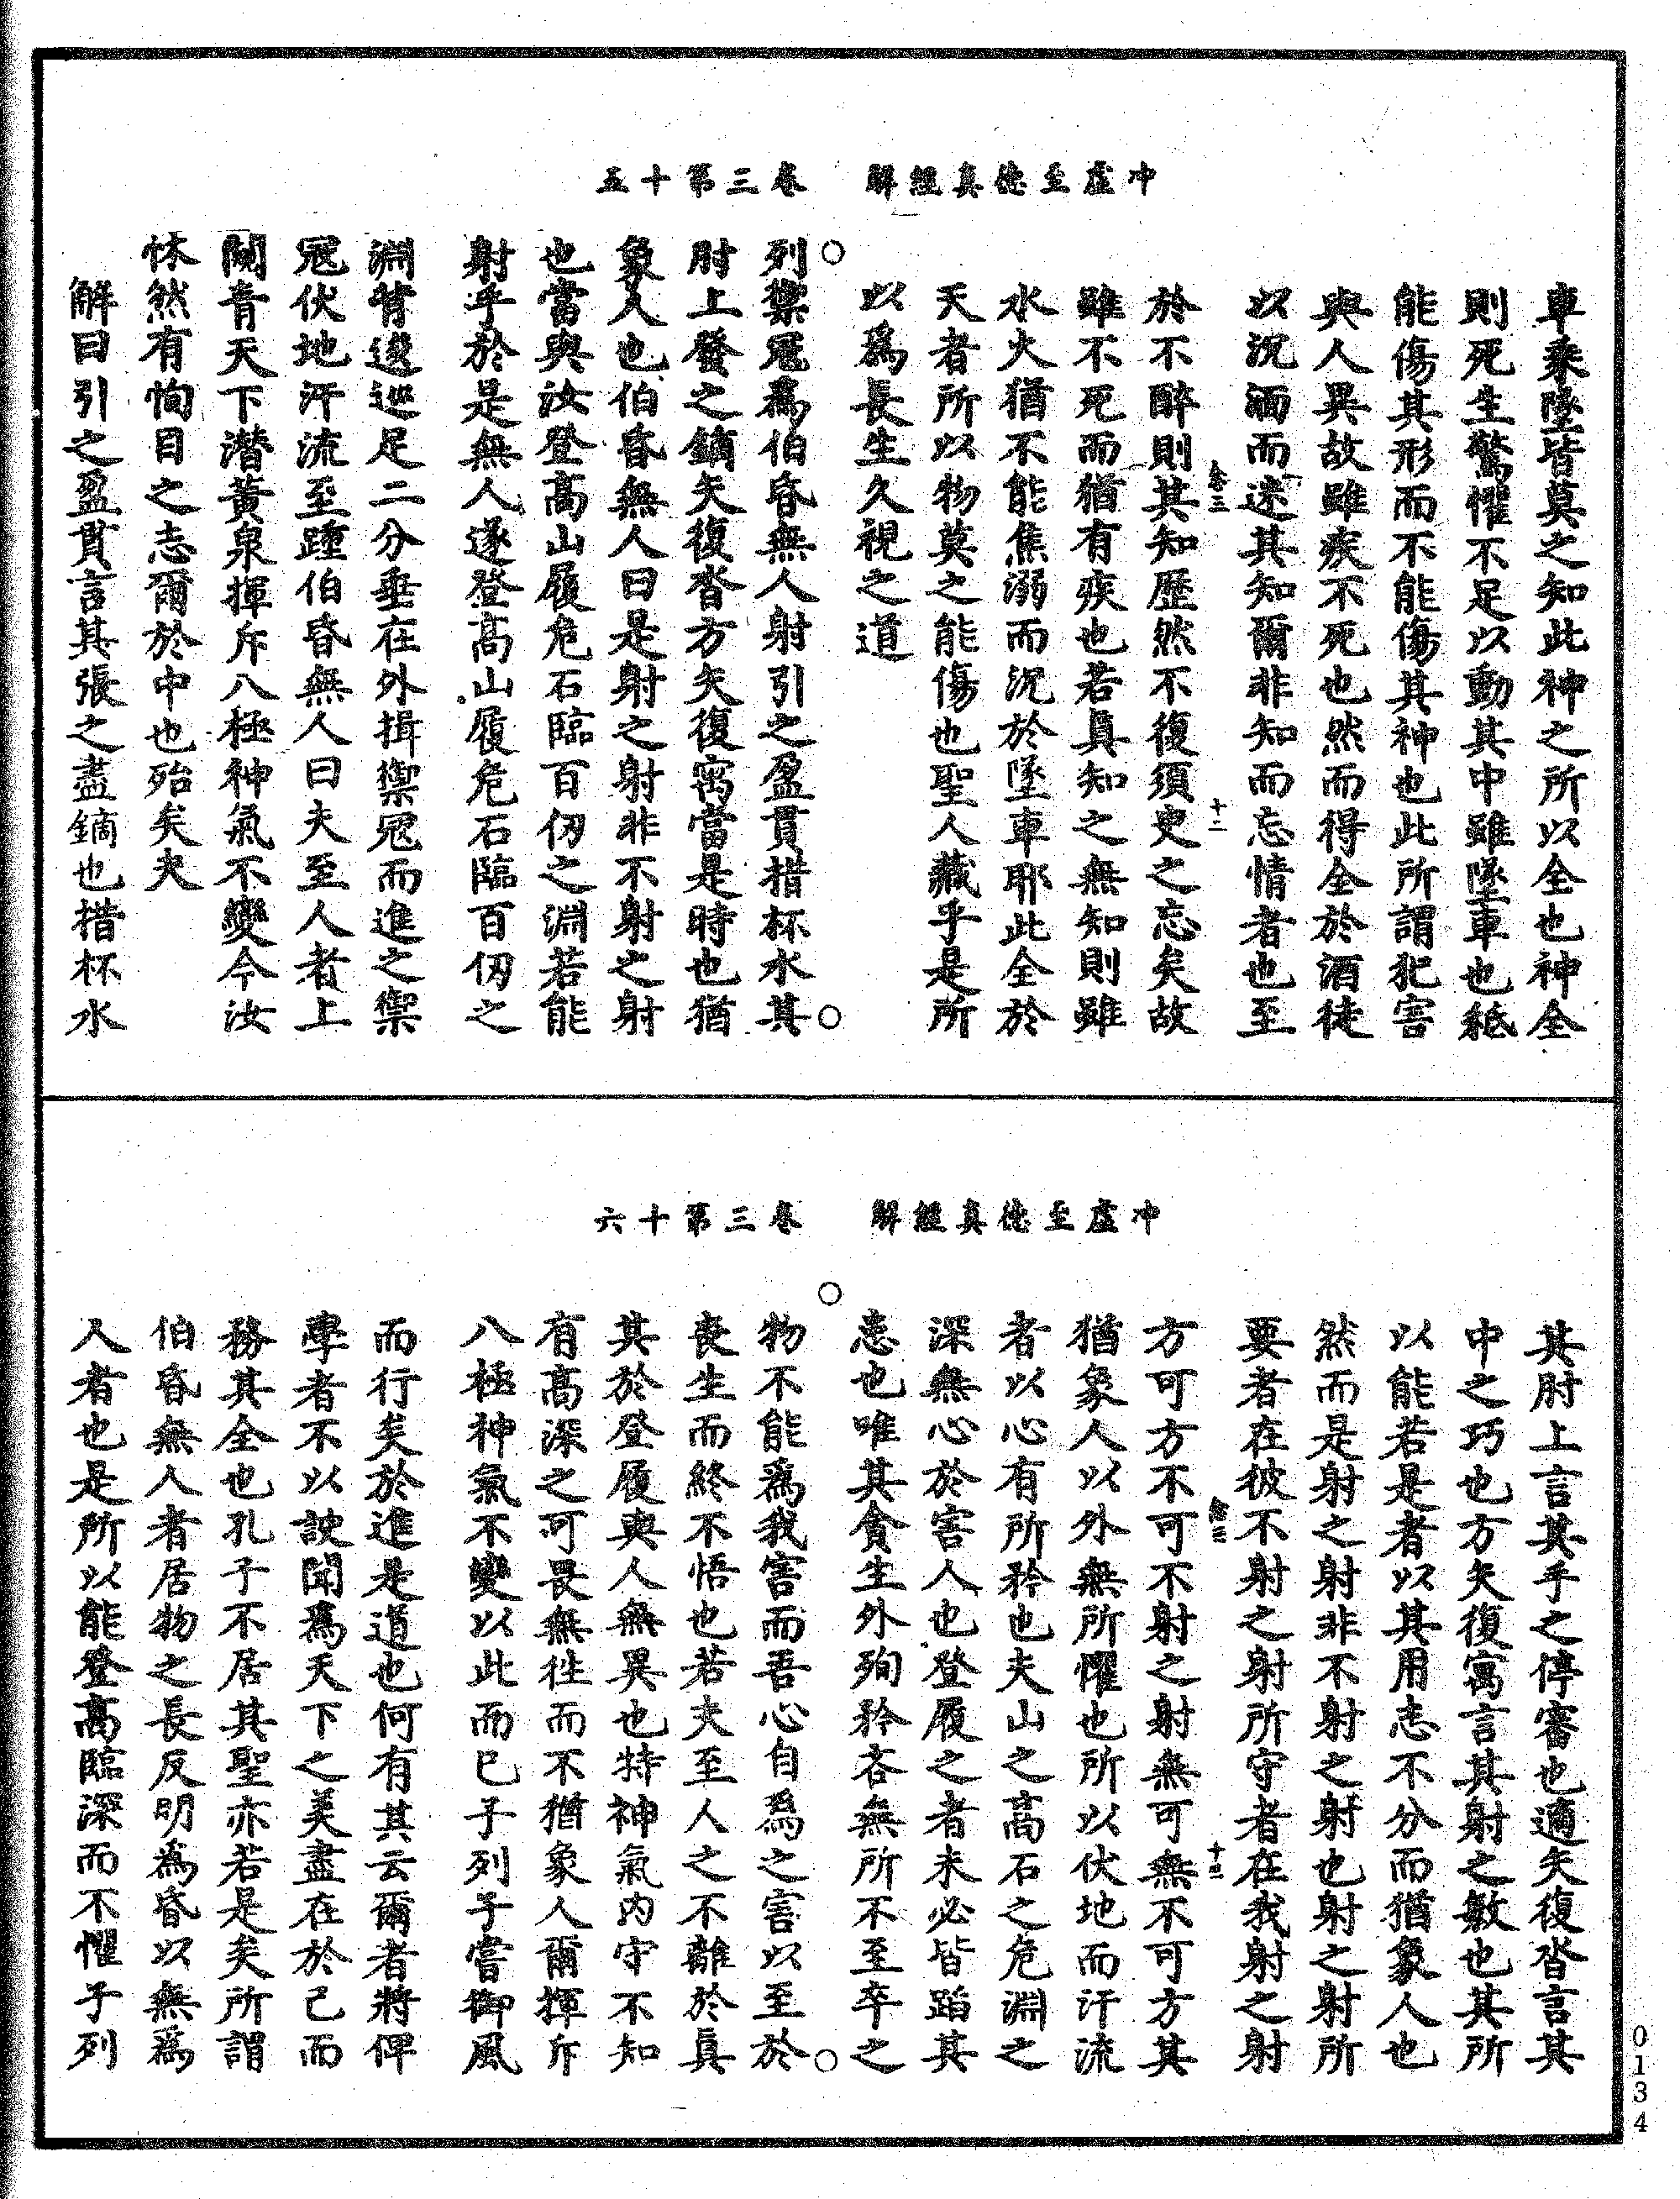 冲虛至德真經解　卷三第十五
車乘墜皆莫之知此神之所以全也神全
則死生驚懼不足以動其中雖墜車也秪
能傷其形而不能傷其神也此所謂犯害
與人異故雖疾不死也然而得全於酒徒
以沉湎而迷其知爾非知而忘情者也至
卷三　十二
於不醉則其知歷然不復須臾之忘矣故
雖不死而猶有疾也若真知之無知則雖
水火猶不能焦溺而沉於墜車耶此全於
天者所以物莫之能傷也聖人藏乎是所
以為長生久視之道
列禦冦為伯昏無人射引之盈貫措杯水其
肘上發之鏑矢復沓方矢復寓當是時也猶
象人也伯昏無人曰是射之射非不射之射
也當與汝登高山履危石臨百仞之淵若能
射乎於是無人遂登高山履危石臨百仞之
淵背逡巡足二分垂在外揖禦冦而進之禦
冦伏地汗流至踵伯昏無人曰夫至人者上
闚青天下潛黃泉揮斥八極神氣不變今汝
怵然有恂目之志爾於中也殆矣夫
解曰引之盈貫言其張之盡鏑也措杯水
冲虛至德真經解　卷三第十六
其肘上言其手之停審也適矢復沓言其
中之巧也方矢復寓言其射之敏也其所
以能若是者以其用志不分而猶象人也
然而是射之射非不射之射也射之射所
要者在彼不射之射所守者在我射之射
卷三　十三
方可方不可不射之射無可無不可方其
猶象人以外無所懼也所以伏地而汗流
者以心有所矜也夫山之高石之危淵之
深無心於害人也登履之者未必皆蹈其
恚也唯其貪生外殉矜吝無所不至卒之
物不能為我害而吾心自為之害以至於
喪生而終不悟也若夫至人之不離於真
其於登履與人無異也特神氣內守不知
有高深之可畏無往而不猶象人爾揮斥
八極神氣不變以此而已子列子嘗御風
而行矣於進是道也何有其云爾者將俾
學者不以詖聞為天下之美盡在於己而
務其全也孔子不居其聖亦若是矣所謂
伯昏無人者居物之長反明為昏以無為
人者也是所以能登高臨深而不懼子列
0134